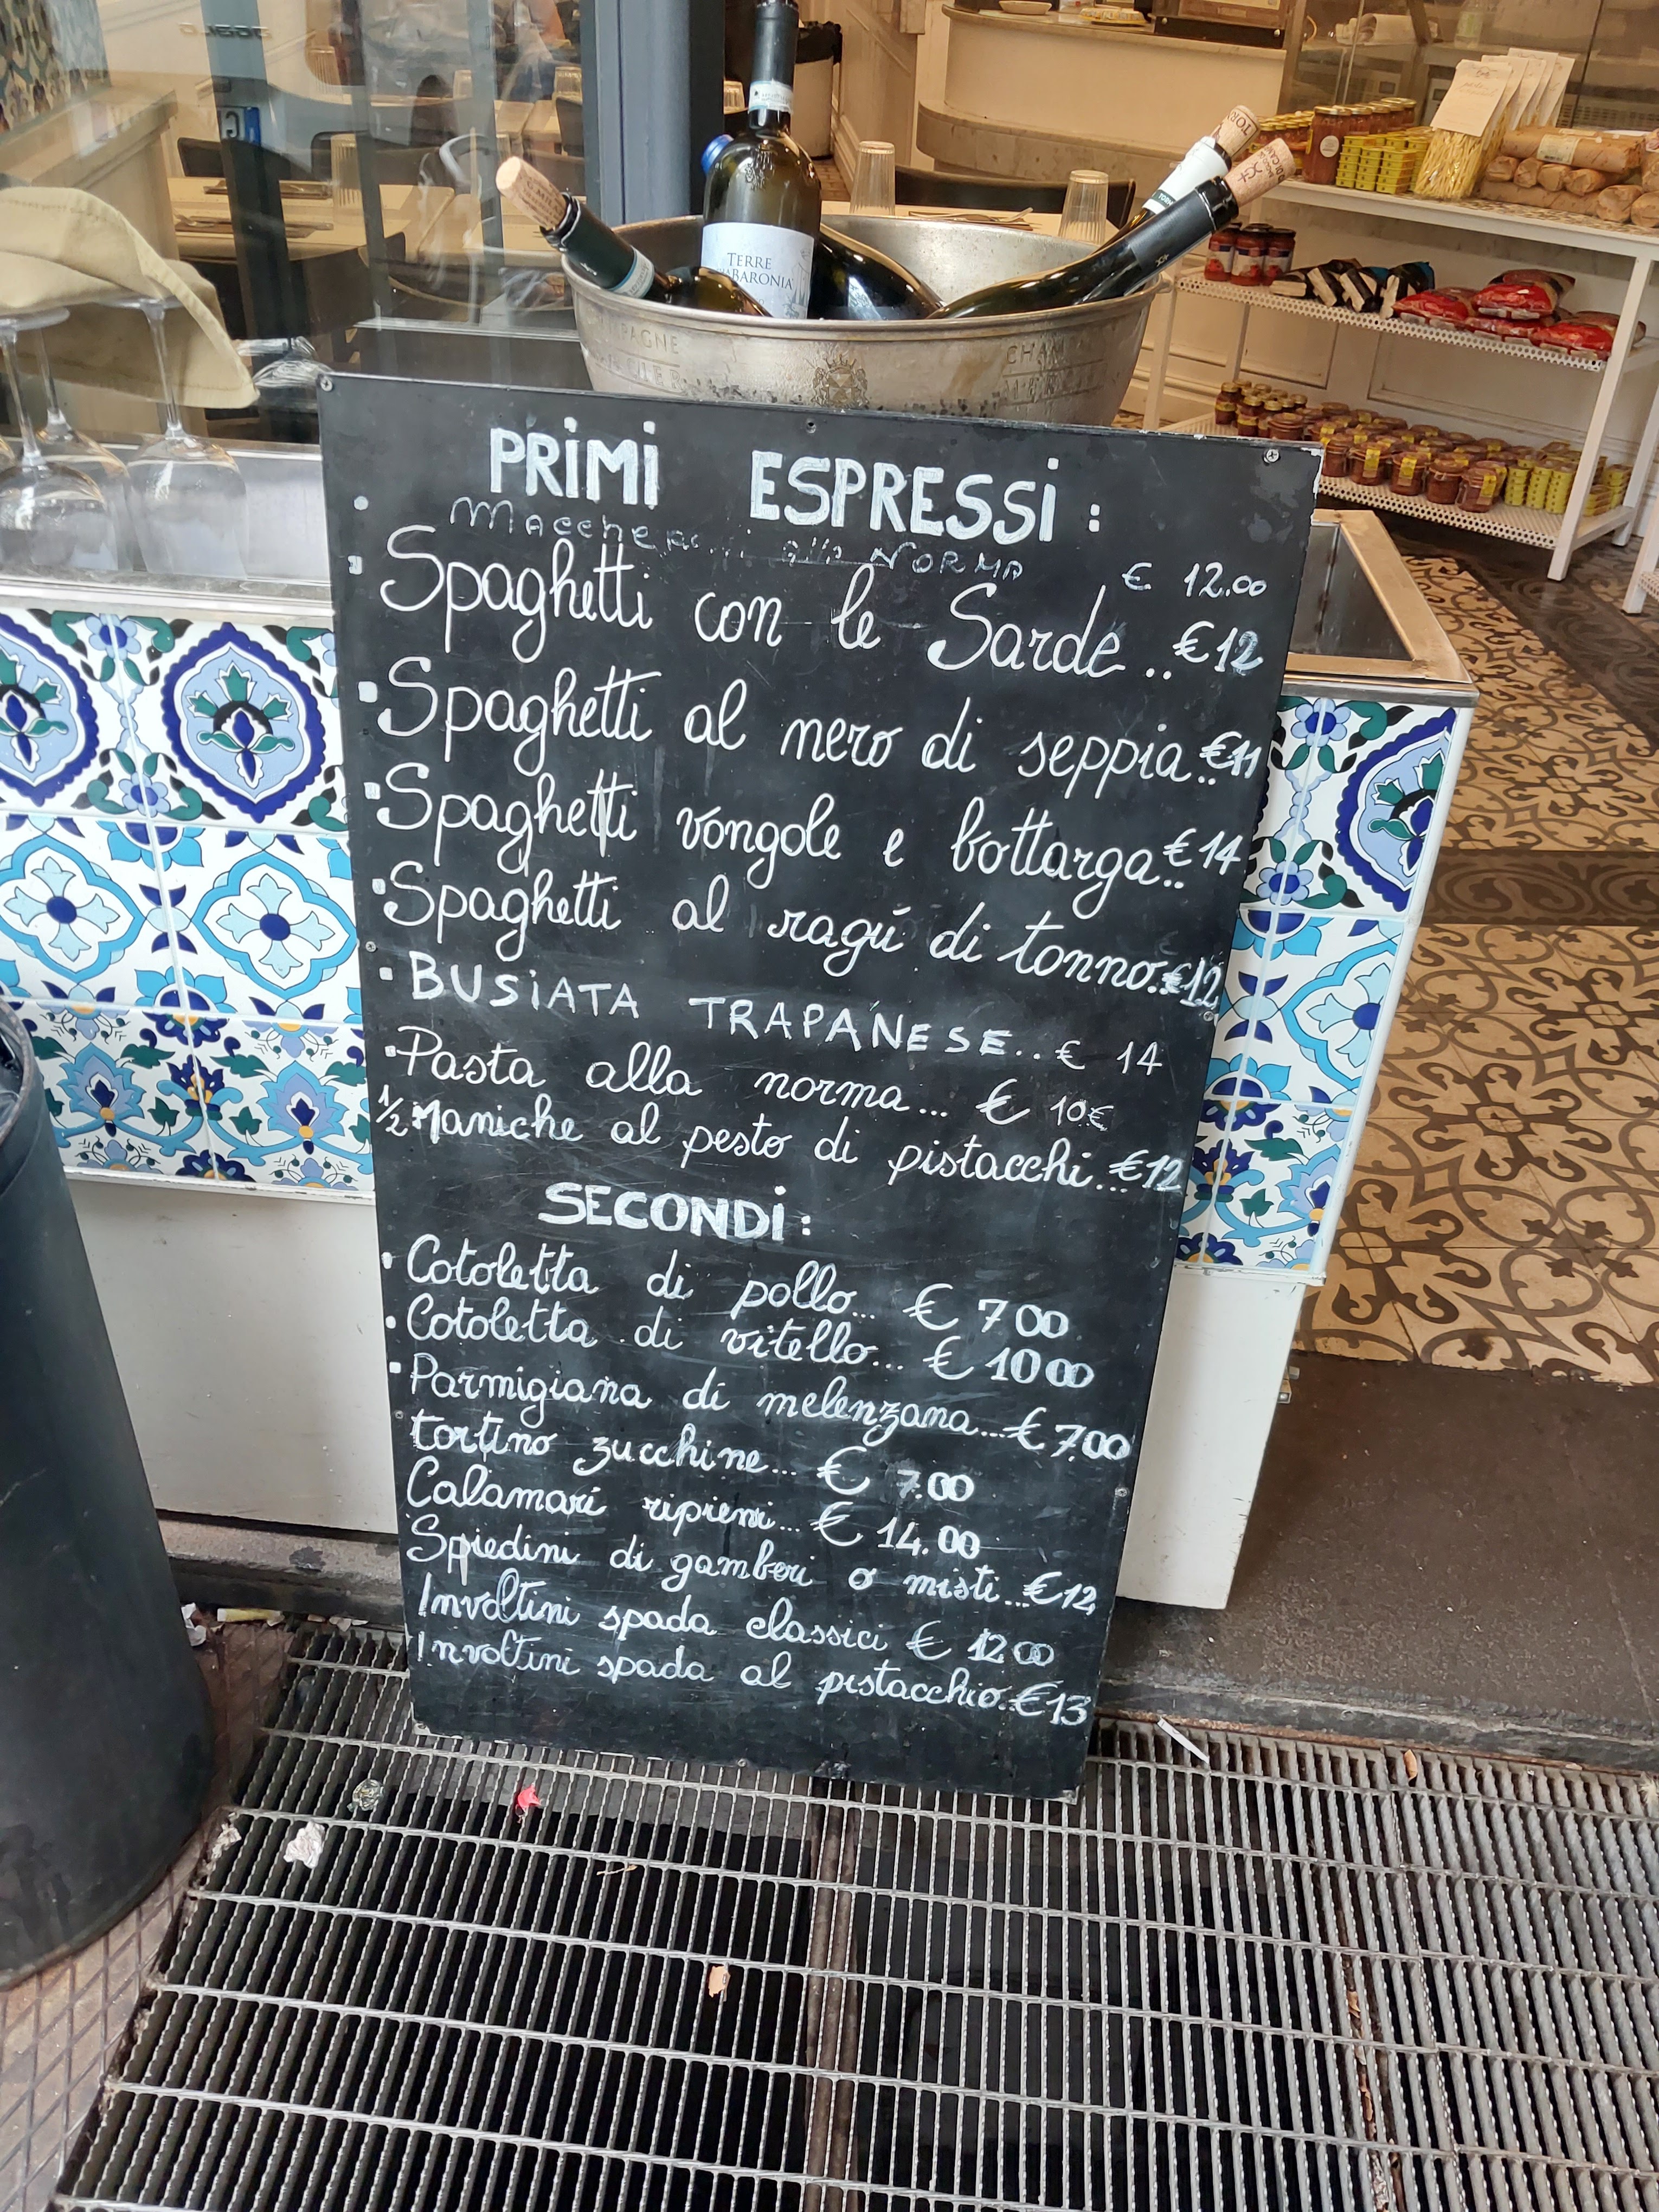 TERRE
PRIMI ESPRESSI:
Maccheroni alla NORMA € 12.00
Spaghetti con le Sarde..€12
Spaghetti al nero di seppia..€11
Spaghetti vongole e bottarga..€14
Spaghetti al ragú di tonno..€12
BUSIATA TRAPANESE..€ 14
Pasta alla norma... € 10€
1/2 Maniche al pesto di pistacchi...€12
SECONDI:
Cotoletta di pollo... € 7 00
Cotoletta di vitello... € 10 00
Parmigiana di melenzana...€ 7.00
tortino zucchine... € 7.00
Calamari ripieni... € 14.00
Spiedini di gamberi o misti...€12
Involtini spada classici € 12 00
Involtini spada al pistacchio..€13